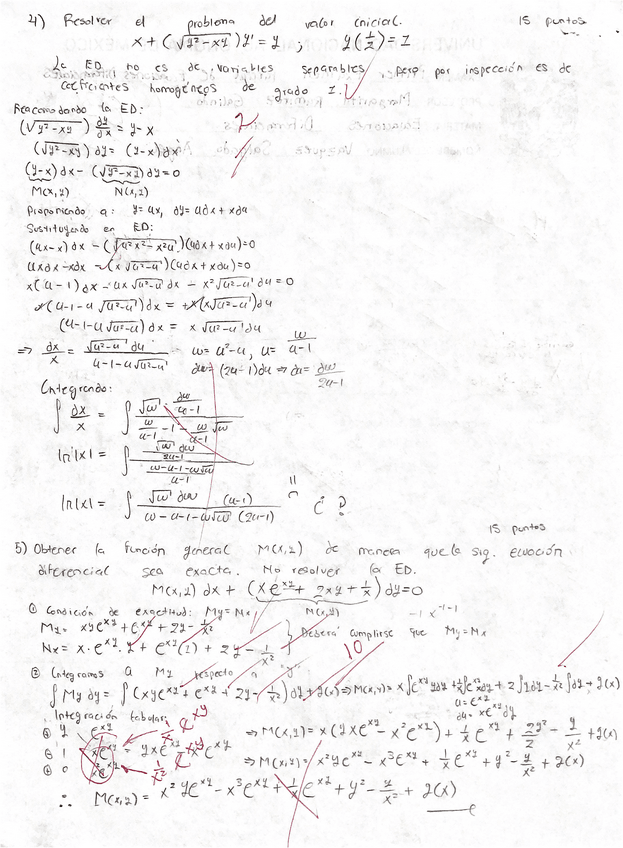 4) Resolver el problema del valor inicial. 15 puntos
x + (√(y²-xy)) y' = y ; y(1/2) = 1
La ED no es de variables separables pero por inspección es de
coeficientes homogéneos de grado 1.
Reacomodando la ED:
(√(y²-xy)) dy/dx = y-x
2
(√(y²-xy)) dy = (y-x) dx
(y-x) dx - (√(y²-xy)) dy = 0
M(x,y) N(x,y)
Proponiendo a: y = ux, dy = udx + xdu
Sustituyendo en ED:
(ux-x) dx - (√(u²x²-x²u)) (udx + xdu) = 0
uxdx - xdx - (x√(u²-u)) (udx + xdu) = 0
x(u-1) dx - ux√(u²-u) dx - x²√(u²-u) du = 0
x(u-1-u√(u²-u)) dx = +x(x√(u²-u)) du
(u-1-u√(u²-u)) dx = x√(u²-u) du
⇒ dx/x = √(u²-u) du / u-1-u√(u²-u) w = u²-u, u = w/u-1
dw = (2u-1) du ⇒ du = dw/2u-1
Integrando:
∫ dx/x = ∫ √w · dw/u-1 / w/u-1 - 1 - w/u-1 √w
ln|x| = ∫ √w dw/2u-1 / w-u-1-w√w/u-1
ln|x| = ∫ √w dw (u-1) / w-u-1-w√w (2u-1) ¿ ?
15 puntos
5) Obtener la función general M(x,y) de manera que la sig. ecuación
diferencial sea exacta. No resolver la ED.
M(x,y) dx + (xe^xy + 2xy + 1/x) dy = 0
① Condición de exactitud: My = Nx N(x,y) -1 x^-1-1
My = xye^xy + e^xy + 2y - 1/x²
Nx = x·e^xy·y + e^xy(1) + 2y - 1/x² } Deberá cumplirse que My = Nx
10
② Integramos a My respecto a "y"
∫My dy = ∫(xye^xy + e^xy + 2y - 1/x²) dy + g(x) ⇒ M(x,y) = x∫e^xy ydy + 1/x∫e^xy xdy + 2∫ydy - 1/x²∫dy + g(x)
u = e^xy
du = xe^xy dy
Integración tabular:
⊕ y e^xy 1/x e^xy ⇒ M(x,y) = x(yxe^xy - x²e^xy) + 1/x e^xy + 2y²/2 - y/x² + g(x)
⊖ 1 xe^xy = yxe^xy - x²e^xy
⊕ 0 x²e^xy 1/x² e^xy ⇒ M(x,y) = x²ye^xy - x³e^xy + 1/x e^xy + y² - y/x² + g(x)
∴ M(x,y) = x²ye^xy - x³e^xy + 1/x e^xy + y² - y/x² + g(x)